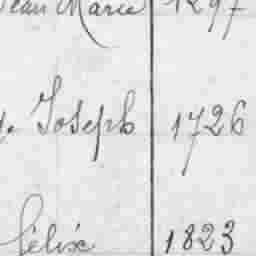 Jean Marie 1297
Joseph 1726
Félix 1823